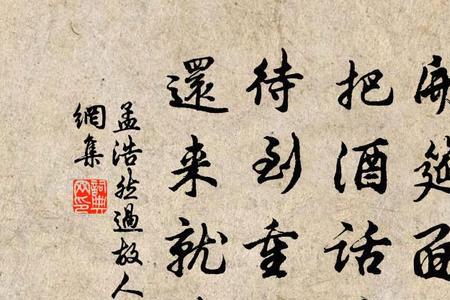 開筵面
把酒話
待到重
還来就
孟浩然過故人
網集